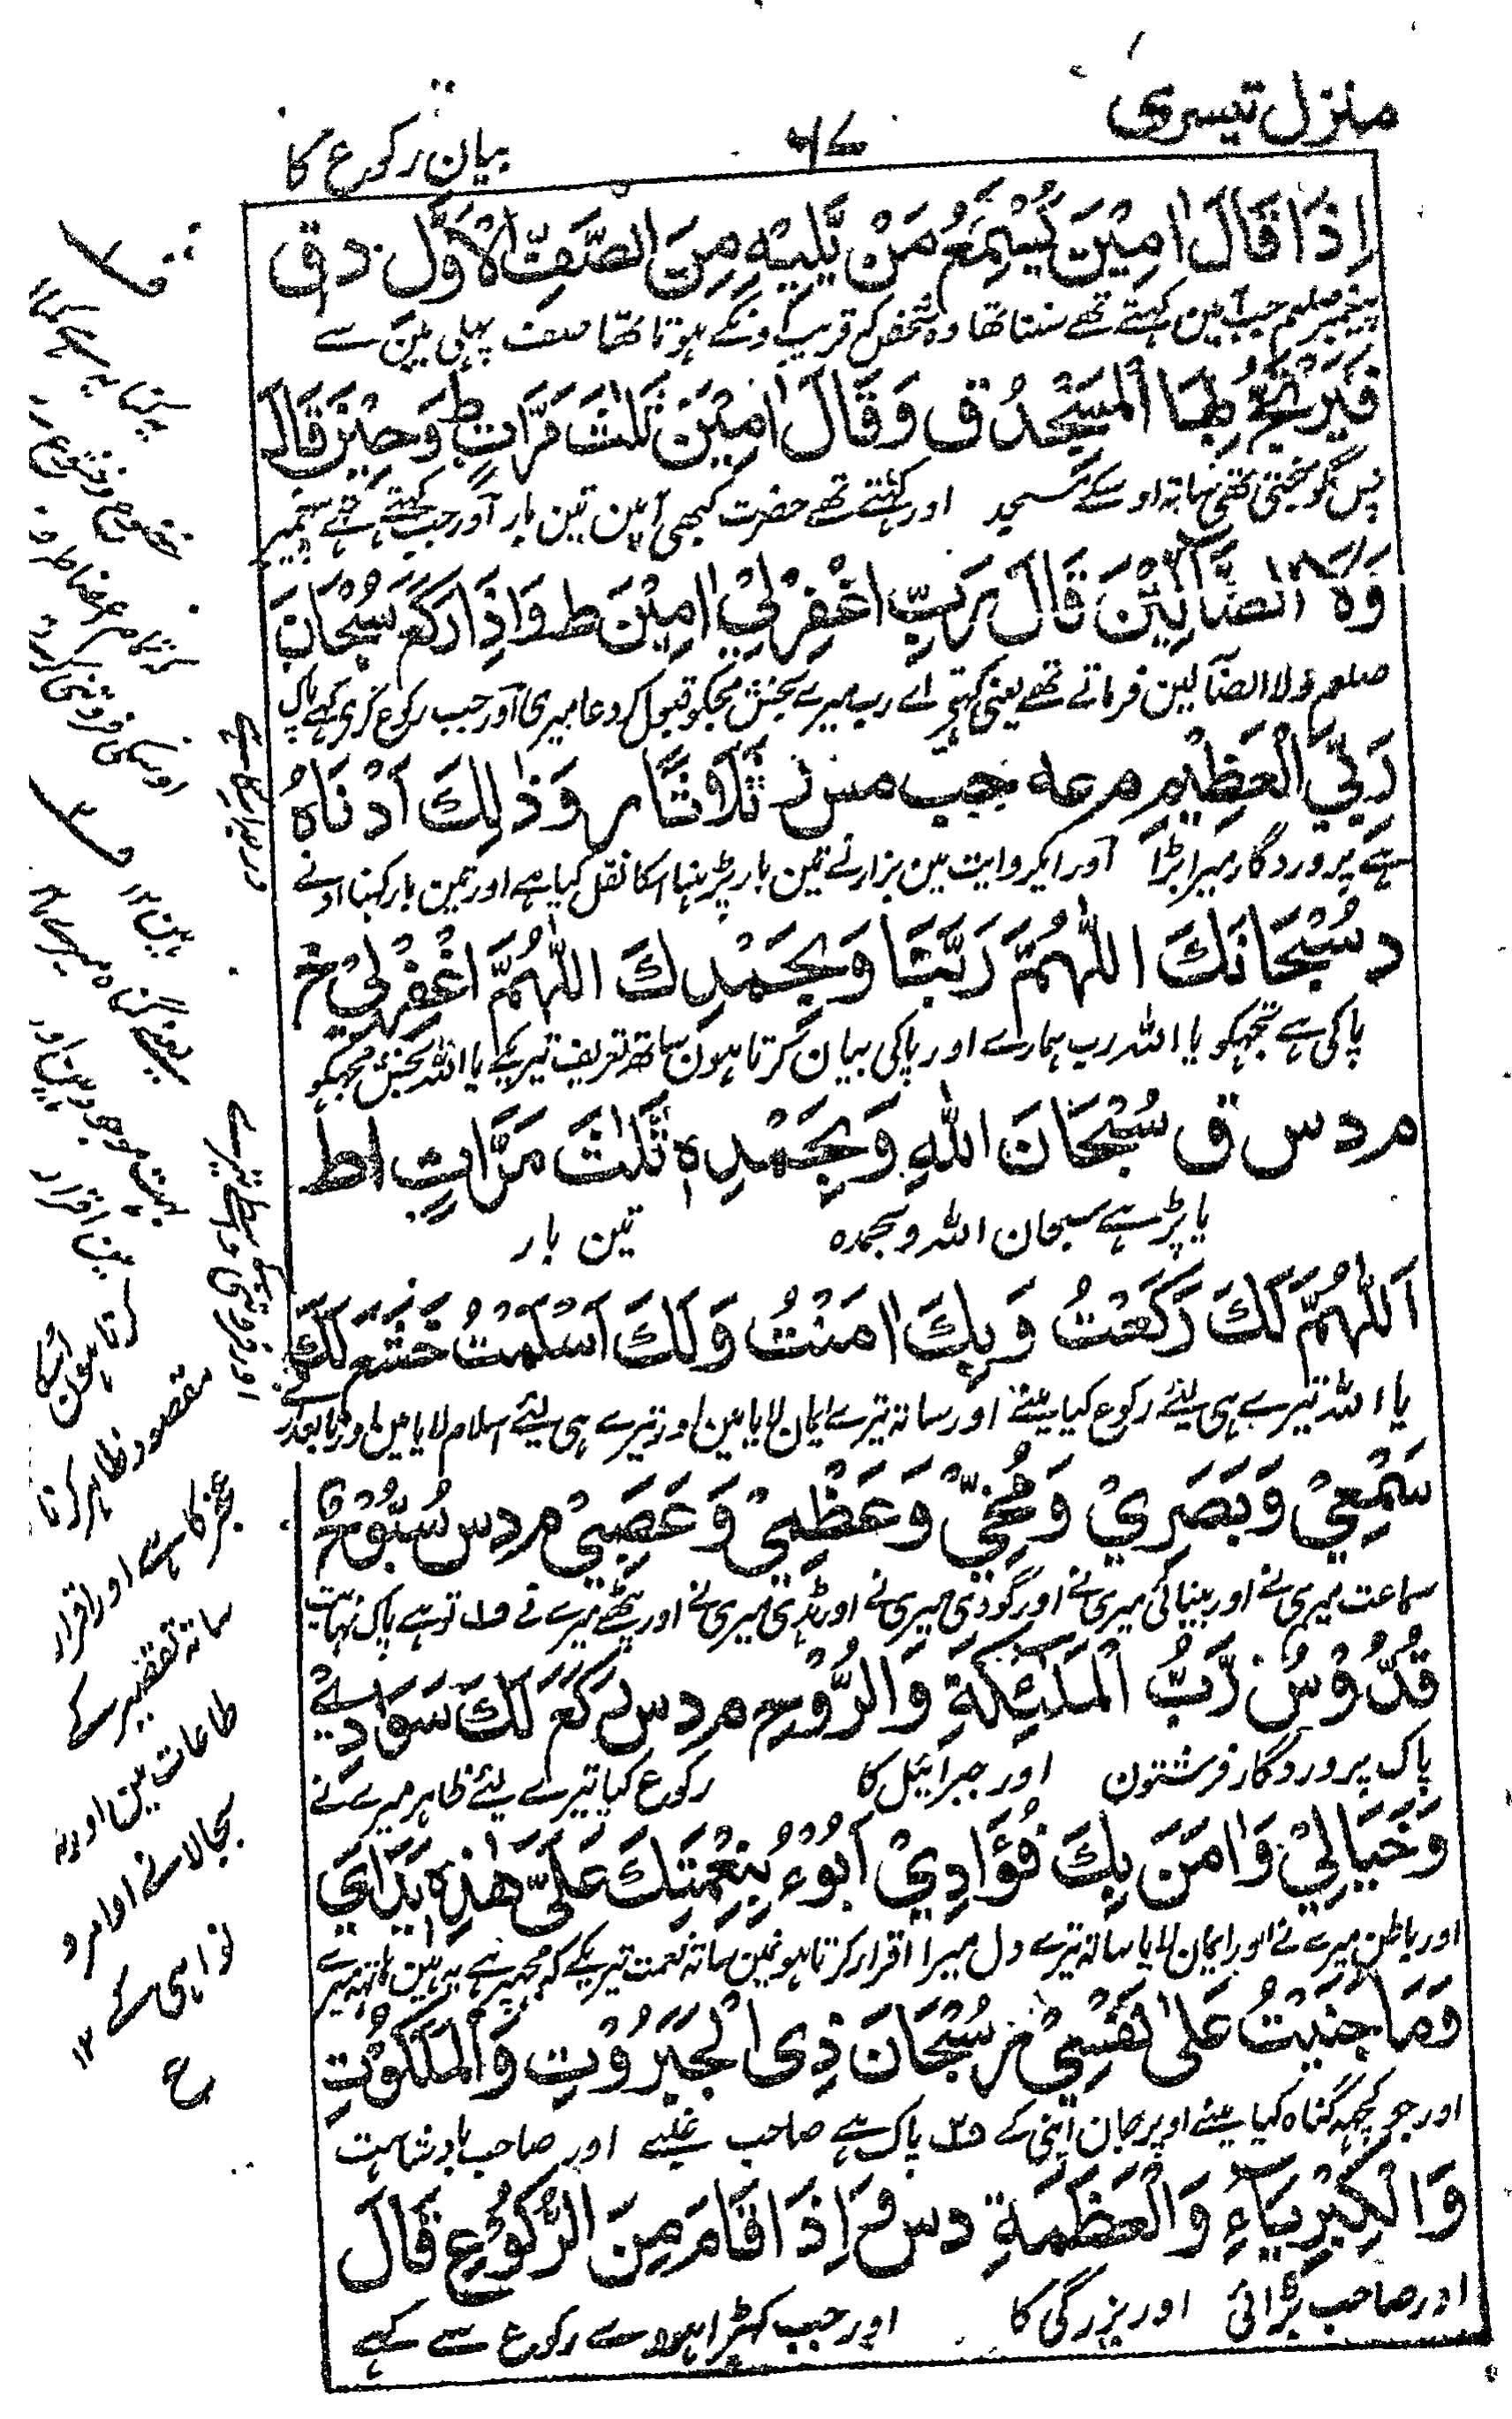 منزل تیسری
۶۷
بیان رکوع کا
اِذَا قَالَ اٰمِیْنَ یُسْمِعُ مَنْ یَّلِیْهِ مِنَ الصَّفِّ الْاَوَّلِ د ق
پیغمبر صلعم جب آمین کہتے تھے سنتا تھا وہ شخص کہ قریب ونکے ہوتا تھا صف پہلی مین سے
فَیَرْتَجُّ بِهَا الْمَسْجِدُ ق وَقَالَ اٰمِیْنَ ثَلٰثَ مَرَّاتٍ ط وَحِیْنَ قَالَ
پس گونجتی تھی ساتہ اوسکے مسجد اور کہتے تھے حضرت کبھی آمین تین بار اور جب کہتے تھے پیغمبر
وَلَا الضَّآلِّیْنَ قَالَ رَبِّ اغْفِرْلِیْ اٰمِیْنَ ط وَاِذَا رَکَعَ سُبْحَانَ
صلعم ولا الضآلین فرماتے تھے یعنی کہتے اے رب میرے بخش مجکو قبول کر دعا میری اور جب رکوع کری کہے پاک
رَبِّیَ الْعَظِیْمِ م عه حب مس ز ثَلَاثًا ر وَذٰلِكَ اَدْنَاهُ
ہے پروردگار میرا بڑا اور ایکروایت مین بزار نے تین بار پڑہنا اسکا نقل کیا ہے اور تین بار کہنا ادنے
د سُبْحَانَكَ اللّٰهُمَّ رَبَّنَا وَبِحَمْدِكَ اللّٰهُمَّ اغْفِرْلِیْ خ
پاکی ہے تجہکو یا اللہ رب ہمارے اور پاکی بیان کرتا ہون ساتھ تعریف تیریکے یا اللہ بخش مجہکو
م د س ق سُبْحَانَ اللّٰهِ وَبِحَمْدِهٖ ثَلٰثَ مَرَّاتٍ ا ط
یا پڑہے سبحان اللہ وبحمدہ تین بار
اَللّٰهُمَّ لَكَ رَکَعْتُ وَبِكَ اٰمَنْتُ وَلَكَ اَسْلَمْتُ خَشَعَ لَكَ
یا اللہ تیرے ہی لیئے رکوع کیا مینے اور ساتہ تیرے ایمان لایا مین اور تیرے ہی لیئے اسلام لایا مین
سَمْعِیْ وَبَصَرِیْ وَمُخِّیْ وَعَظْمِیْ وَعَصَبِیْ م د س سُبُّوْحٌ
سماعت میری نے اور بینائی میری نے اور گودی میری نے اور ہڈی میری نے اور پٹھے میرے نے ف تو ہے پاک نہایت
قُدُّوْسٌ رَبُّ الْمَلٰٓئِكَةِ وَالرُّوْحِ م د س رَکَعَ لَكَ سَوَادِیْ
پاک پروردگار فرشتون اور جبرائیل کا رکوع کیا تیرے لیئے ظاہر میرے نے
وَخَیَالِیْ وَاٰمَنَ بِكَ فُؤَادِیْ اَبُوْءُ بِنِعْمَتِكَ عَلَیَّ هٰذِهٖ یَدَایَ
اور باطن میرے نے اور ایمان لایا ساتہ تیرے دل میرا اقرار کرتا ہونمین ساتہ نعمت تیریکے کہ مجہپر ہے یہ ہین ہاتہہ میرے
وَمَا جَنَیْتُ عَلٰی نَفْسِیْ ر سُبْحَانَ ذِی الْجَبَرُوْتِ وَالْمَلَکُوْتِ
اور جو کچہہ گناہ کیا مینے اوپر جان اپنی کے ف پاک ہے صاحب غلبے اور صاحب بادشاہت
وَالْكِبْرِیَآءِ وَالْعَظَمَةِ د س وَاِذَا قَامَ مِنَ الرُّکُوْعِ قَالَ
اور صاحب بڑائی اور بزرگی کا اور جب کھڑا ہووے رکوع سے کہے
مین اقرار
کرتا ہون
مقصود ظاہر کرنا
عجز کا ہے اور اقرار
ساتہ تقصیر کے
طاعات مین اور نہ
بجا لانے اوامر و
نواہی کے ۱۲
ع